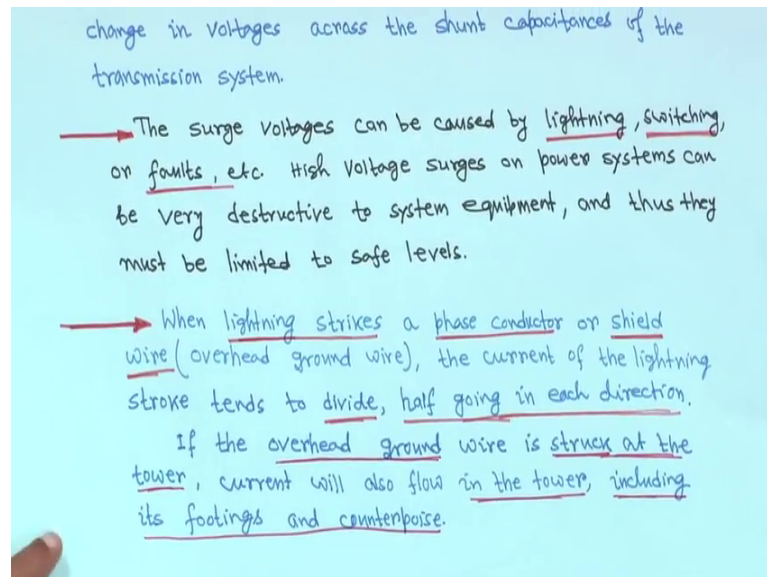 change in voltages across the shunt capacitances of the
transmission system.
The surge voltages can be caused by lightning, switching,
or faults, etc. High voltage surges on power systems can
be very destructive to system equipment, and thus they
must be limited to safe levels.
When lightning strikes a phase conductor or shield
wire (overhead ground wire), the current of the lightning
stroke tends to divide, half going in each direction.
If the overhead ground wire is struck at the
tower, current will also flow in the tower, including
its footings and counterpoise.